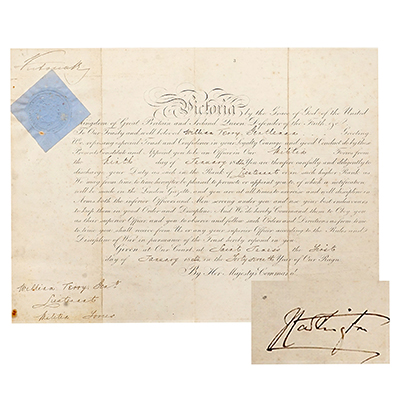 Victoria R
Victoria by the Grace of God of the United
Kingdom of Great Britain and Ireland Queen Defender of the Faith &c
To Our Trusty and well beloved William Terry, Gentleman Greeting
We reposing especial Trust and Confidence in your Loyalty Courage and good Conduct do by these
Presents Constitute and Appoint you to be an Officer in Our Militia Forces from
the day of January You are therefore carefully and diligently to
discharge your Duty as such in the Rank of Lieutenant or in such higher Rank as
We may from time to time hereafter be pleased to promote or appoint you to of which a notification
will be made in the London Gazette and you are at all times to exercise and well discipline in
Arms both the inferior Officers and Men serving under you and use your best endeavours
to keep them in good Order and Discipline And We do hereby Command them to Obey you
as their superior Officer and you to observe and follow such Orders and Directions as from time
to time you shall receive from Us or any your superior Officer according to the Rules and
Discipline of War in pursuance of the Trust hereby reposed in you
Given at Our Court at Saint James's the
day of January in the Forty Year of Our Reign
By Her Majesty's Command
William Terry, Gent
Lieutenant
Militia Forces
Hartington